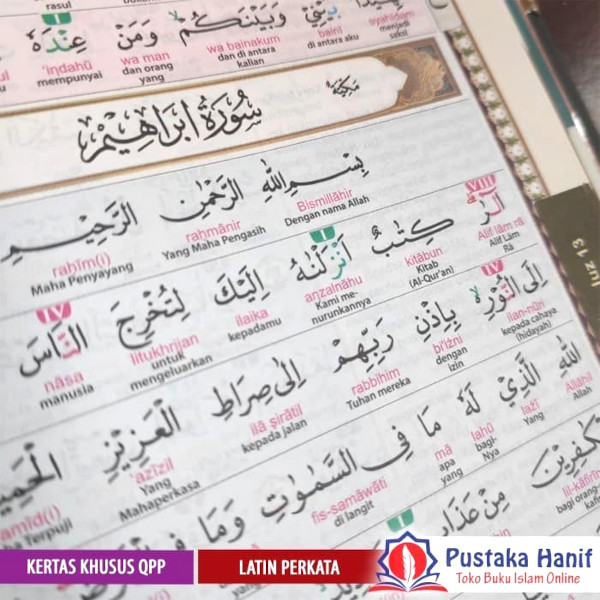 rasul
شَهِيْدًاۢ بَيْنِيْ وَبَيْنَكُمْ وَمَنْ عِنْدَهٗ
syahīdam baini wa bainakum wa man ‘iṇdahū
menjadi saksi di antara aku dan di antara kalian dan orang yang mempunyai
سُوْرَةُ اِبْرَاهِيْمَ
مكية
بِسْمِ اللّٰهِ الرَّحْمٰنِ الرَّحِيْمِ
Bismillāhir raḥmānir raḥīm(i)
Dengan nama Allah Yang Maha Pengasih Maha Penyayang
VIII I IV
الۤرٰ كِتٰبٌ اَنْزَلْنٰهُ اِلَيْكَ لِتُخْرِجَ النَّاسَ
Alif lām rā kitābun aṇzalnāhu ilaika litukhrija nāsa
Alif Lām Rā Kitab (Al-Qur'an) Kami menurunkannya kepadamu untuk mengeluarkan manusia
IV
اِلَى النُّوْرِ بِاِذْنِ رَبِّهِمْ اِلٰى صِرَاطِ الْعَزِيْزِ الْحَمِيْدِ
ilan-nūri bi'iżni rabbihim ilā ṣirāṭil ‘azīzil ḥamīd(i)
kepada cahaya (hidayah) dengan izin Tuhan mereka kepada jalan Yang Mahaperkasa Terpuji
اللّٰهِ الَّذِيْ لَهٗ مَا فِى السَّمٰوٰتِ وَمَا فِى
Allāhil lażī lahū mā fis-samāwāti
Allah Yang bagi-Nya apa yang di langit
I
لِّلْكٰفِرِيْنَ مِنْ عَذَابٍ
lil-kāfirīn
bagi orang-
juz 13
KERTAS KHUSUS QPP
LATIN PERKATA
Pustaka Hanif
Toko Buku Islam Online